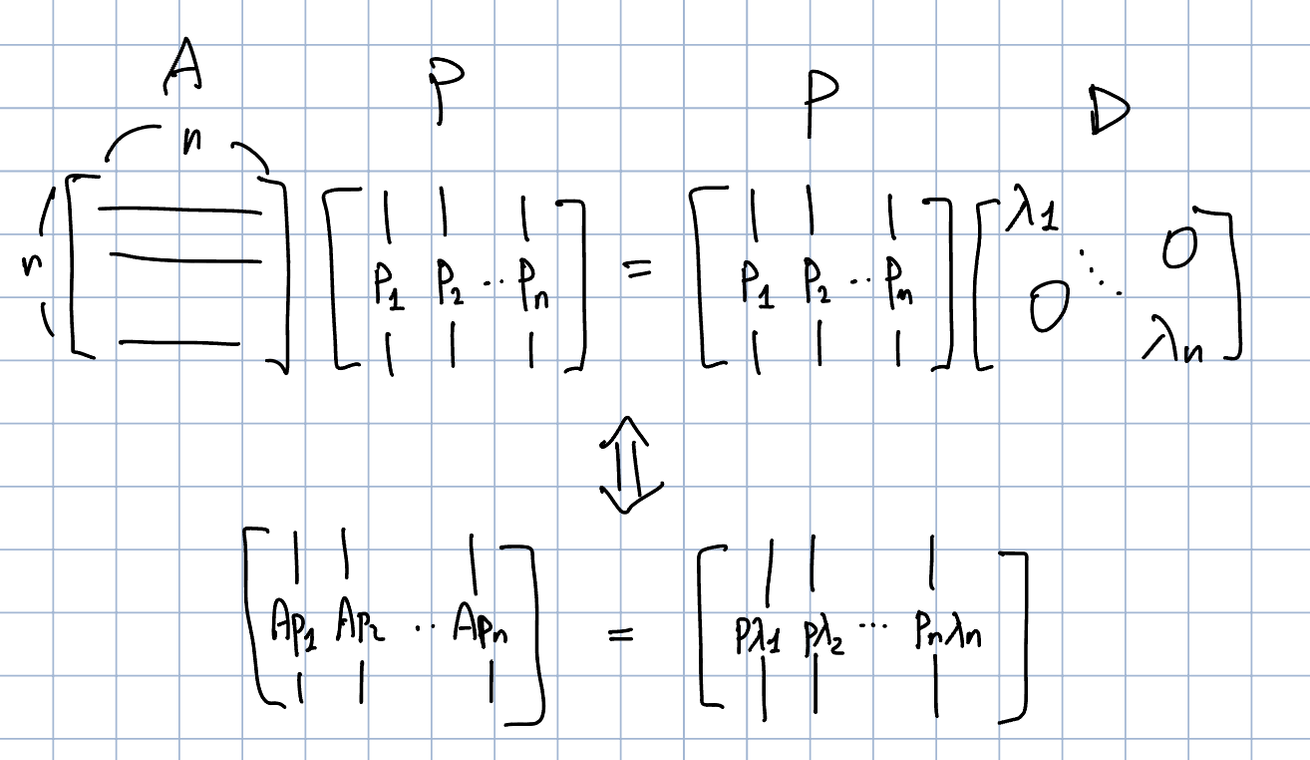 A P P D
n
n [ ] [ P₁ P₂ ·· Pₙ ] = [ P₁ P₂ ·· Pₙ ] [ λ₁ ⋱ 0 0 λₙ ]
⇕
[ Ap₁ Ap₂ ·· Apₙ ] = [ pλ₁ pλ₂ ··· pₙλₙ ]